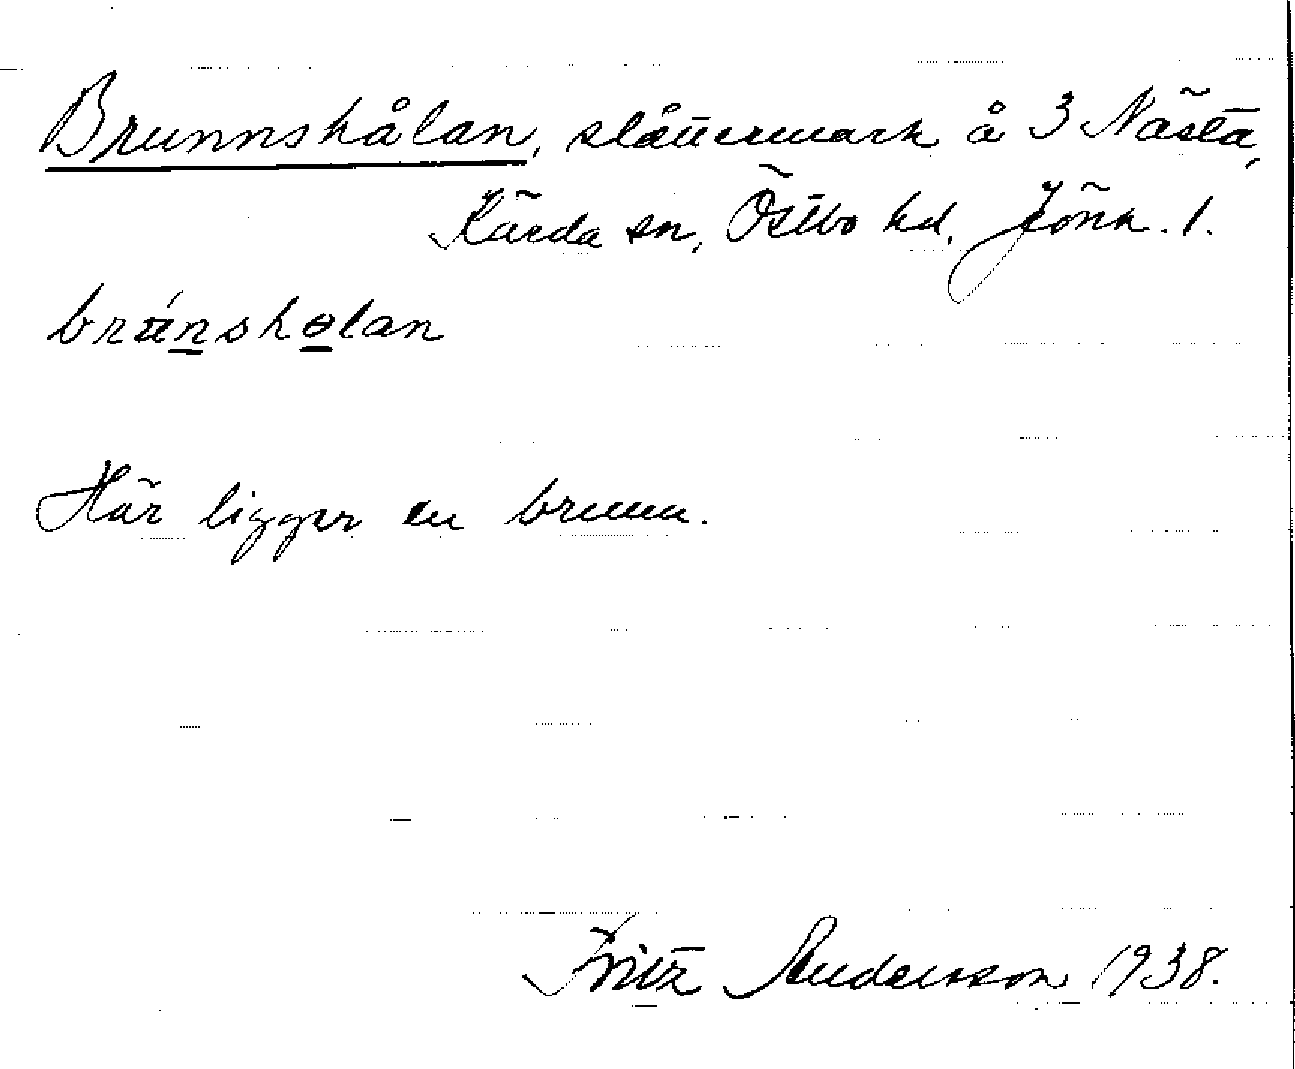 Brunnshålan, slåttermark å 3 Nästa,
Kärda sn, Östbo hd, Jönk. l.
Här ligger en brunn.
Fritz Andersson 1938.